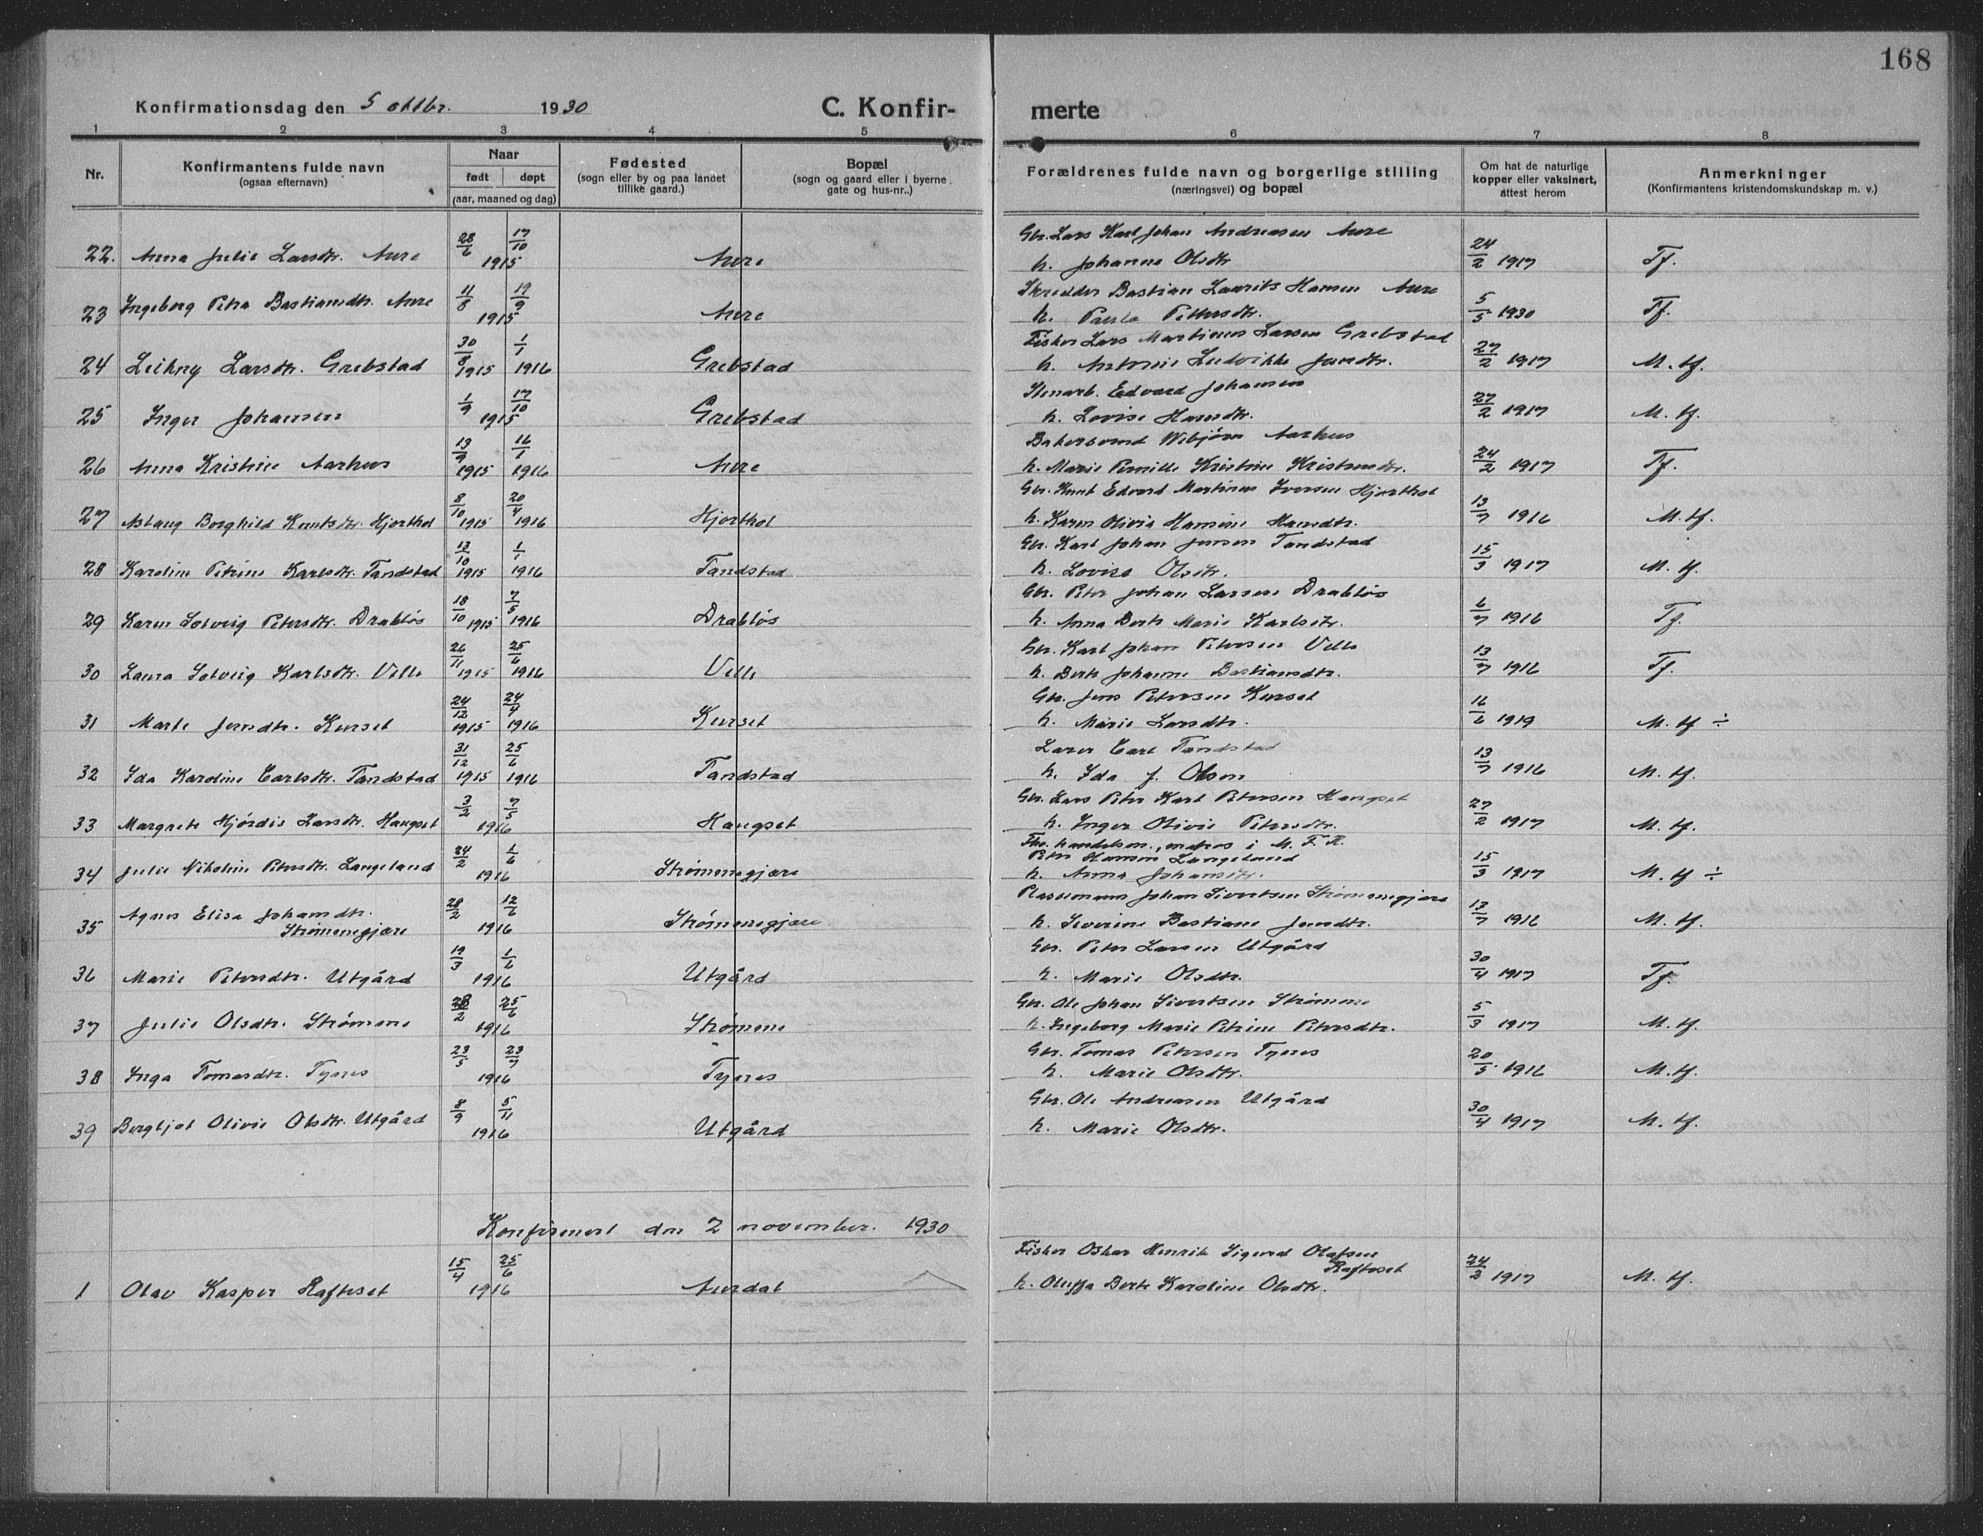 168
Konfirmationsdag den 5 oktbr. 1930 C. Konfir- merte
1 2 3 4 5 6 7 8
Nr. Konfirmantens fulde navn (ogsaa efternavn) Naar født døpt (aar, maaned og dag) Fødested (sogn eller by og paa landet tillike gaard.) Bopæl (sogn og gaard eller i byerne gate og hus-nr..) Forældrenes fulde navn og borgerlige stilling (næringsvei) og bopæl Om hat de naturlige kopper eller vaksinert, attest herom Anmerkninger (Konfirmantens kristendomskundskap m. v.)
22. Anna Julie Larsdtr. Aure 28/6 17/10 1915 Aure Gbr. Lars Karl Johan Andreasen Aure h. Johanne Olsdtr 24/2 1917 Tf.
23 Ingeborg Petra Bastiansdtr. Aure 11/8 19/9 1915 Aure Skredder Bastian Laurits Hansen Aure h. Paula Pettersdtr. 5/5 1930 Tf.
24 Leikny Larsdtr. Grebstad 30/8 1915 1/1 1916 Grebstad Fisker Lars Martinus Larsen Grebstad h. Antonie Ludvikke Jensdtr. 27/2 1917 M. tf.
25 Inger Johansen 1/9 17/10 1915 Grebstad Stenarb. Edvard Johansen h. Lovise Hansdtr. 27/2 1917 M. tf.
26 Anna Kristine Aarhus 13/9 1915 16/1 1916 Aure Bakersvend Aarhus h. Marie Pernille Kristine Kristensdtr. 24/2 1917 Tf.
27 Aslaug Borghild Knutsdtr. Hjorthol 8/10 1915 20/4 1916 Hjorthol Gbr. Knut Edvard Martinus Iversen Hjorthol h. Karen Olivia Hansine Hansdtr. 13/7 1916 M. tf.
28 Karoline Petrine Karlsdtr. Tandstad 13/10 1915 1/1 1916 Tandstad Gbr. Karl Johan Jensen Tandstad h. Lovise Olsdtr. 15/3 1917 M. tf.
29 Karen Solveig Petersdtr. Drabløs 18/10 1915 7/5 1916 Drabløs Gbr. Peter Johan Larsen Drabløs h. Anna Berte Marie Karlsdtr. 6/7 1916 Tf.
30 Laura Solveig Karlsdtr. Velle 26/11 1915 25/6 1916 Velle Gbr. Karl Johan Petersen Velle h. Berte Johanne Bastiansdtr. 13/7 1916 Tf.
31 Marte Jensdtr. Kurset 24/12 1915 24/4 1916 Kurset Gbr. Jens Petersen Kurset h. Marie Larsdtr. 16/6 1919 M. tf ÷
32 Ida Karoline Carlsdtr. Tandstad 31/12 1915 25/6 1916 Tandstad Lærer Carl Tandstad h. Ida J. Olsen 13/7 1916 M. tf.
33 Margrete Hjørdis Larsdtr. Haugset 3/2 7/5 1916 Haugset Gbr. Lars Peter Karl Petersen Haugset h. Inger Olivie Petersdtr. 27/2 1917 M. tf.
34 Julie Nikoline Petersdtr. Langeland 24/2 1/6 1916 Strømmegjære matros i M. F. R. Peter Hansen Langeland h. Anna Johansdtr. 15/3 1917 M. tf ÷
35 Agnes Elisa Johansdtr. Strømmegjære 28/2 12/6 1916 Strømmegjære Plassemann Johan Sivertsen Strømmegjære h. Severine Bastiane Jensdtr. 13/7 1916 M. tf.
36 Marie Petersdtr. Utgård 19/3 1/6 1916 Utgård Gbr. Peter Larsen Utgård h. Marie Olsdtr. 30/4 1917 Tf.
37 Julie Olsdtr. Strømme 28/2 25/6 1916 Strømme Gbr. Ole Johan Sivertsen Strømme h. Ingeborg Marie Petrine Petersdtr. 5/3 1917 M. tf.
38 Inga Tomasdtr. Tynes 23/5 23/7 1916 Tynes Gbr. Tomas Petersen Tynes h. Marie Olsdtr. 20/5 1916 M. tf.
39 Bergljot Olivie Olsdtr. Utgård 8/9 5/11 1916 Utgård Gbr. Ole Andreasen Utgård h. Marie Olsdtr. 30/4 1917 M. tf.
Konfirmert den 2 november. 1930
1 Olav Kasper Rafteset 15/4 25/6 1916 Aurdal Fisker Oskar Henrik Sigurd Olafsen Rafteset h. Oluffa Berte Karoline Olsdtr. 24/2 1917 M. tf.